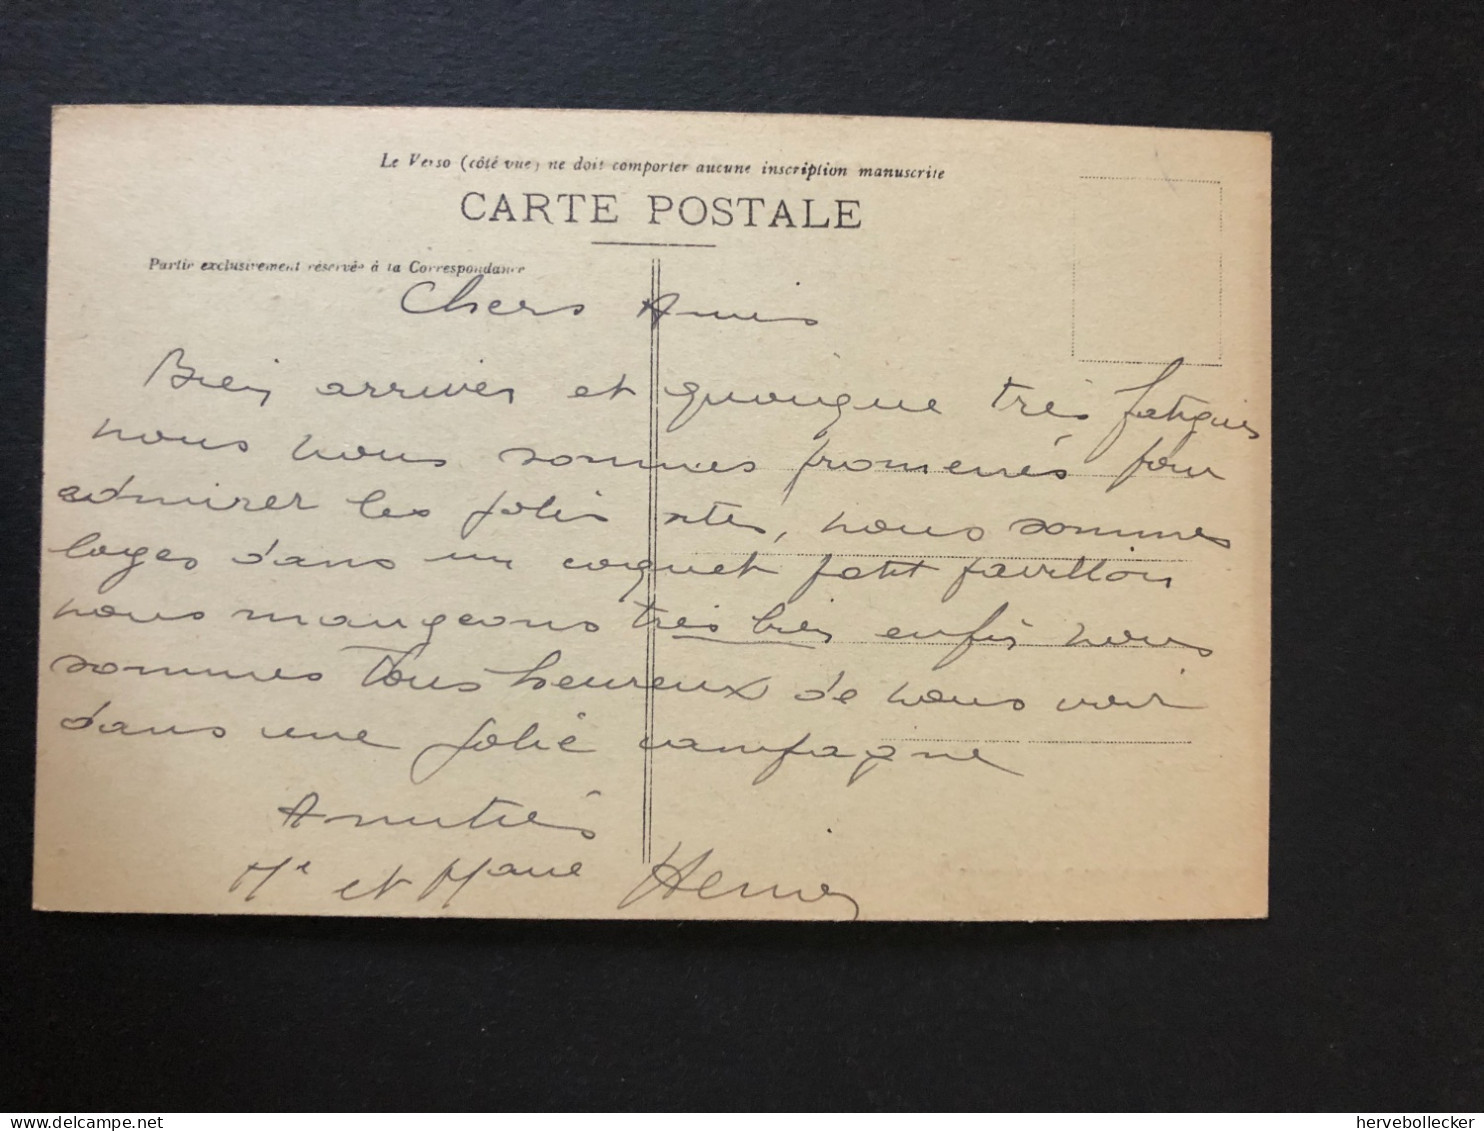 Le Verso (côté vue) ne doit comporter aucune inscription manuscrite
CARTE POSTALE
Partie exclusivement réservée à la Correspondance
Chers Amis
Bien arrivés et quoique très fatigués
nous nous sommes promenés pour
admirer les jolis sites, nous sommes
loges dans un coquet petit pavillon
nous mangeons très bien enfin nous
sommes tous heureux de nous voir
dans une jolie campagne
Amitiés
Mr et Mme
hervebollecker